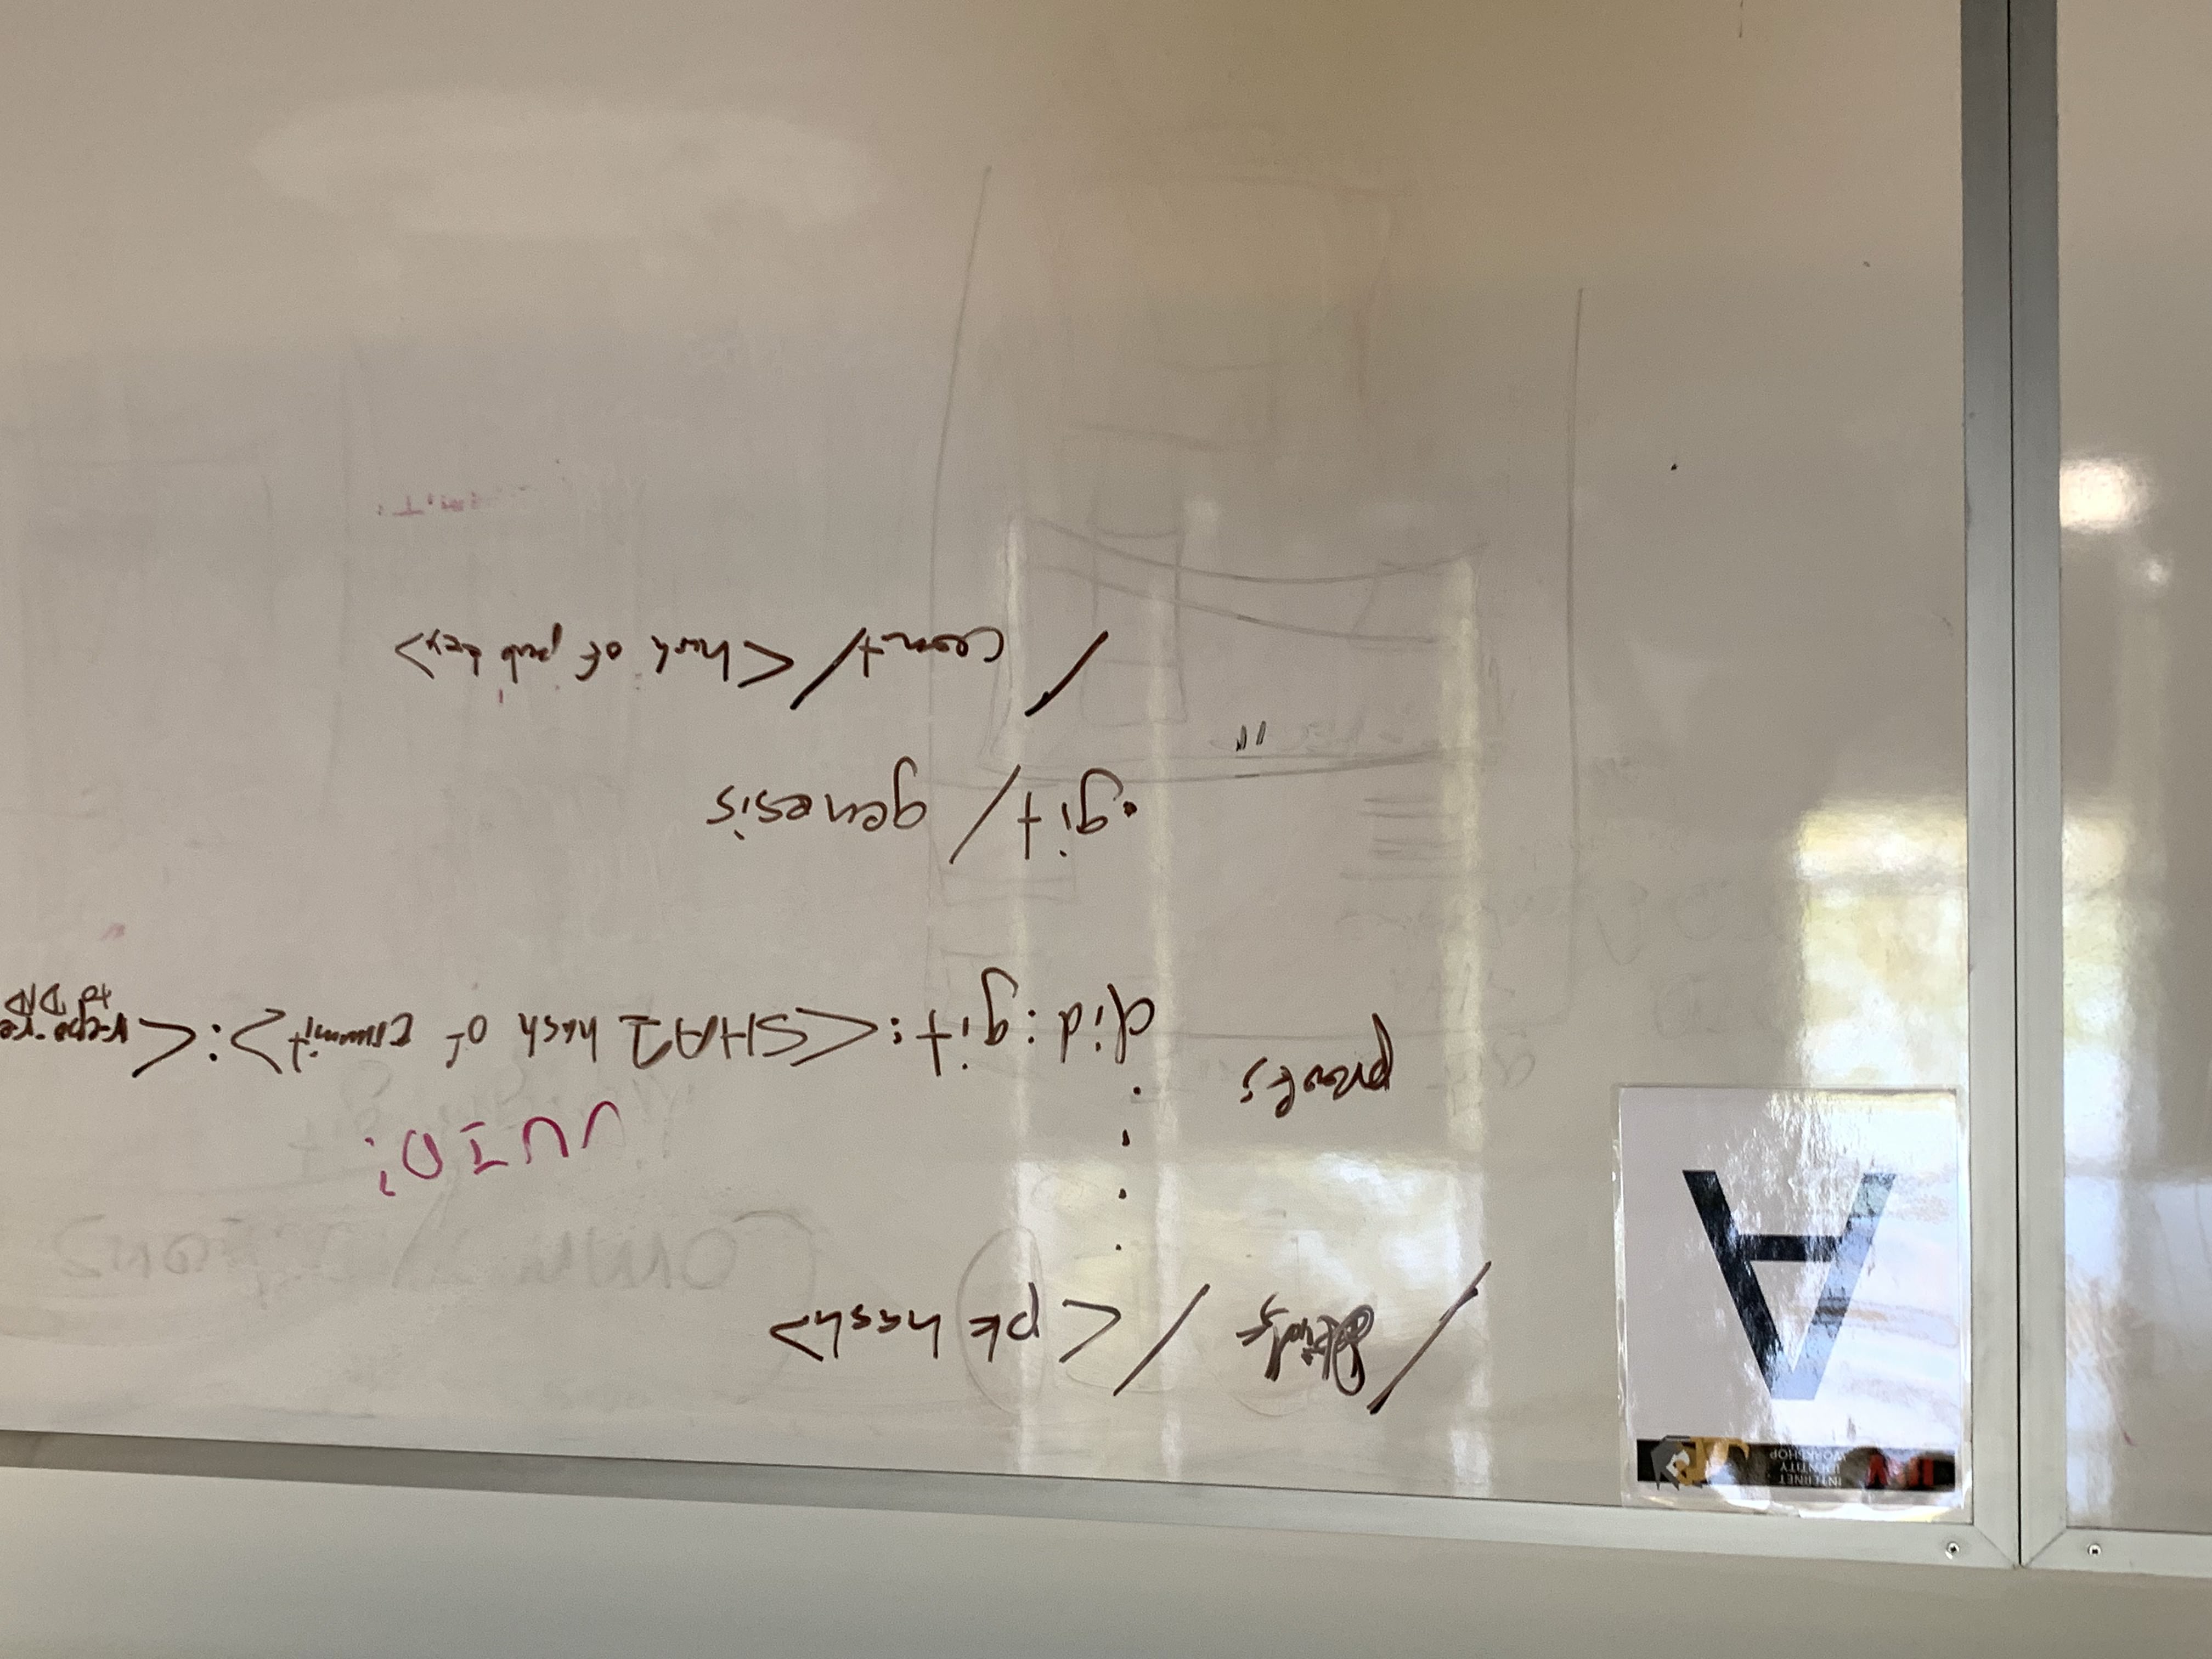 INTERNET
IDENTITY
WORKSHOP
A
/ / <pk hash>
UUID?
proofs
did:git:<SHA1 hash of commit>:<repo-re
to DID
.git/ genesis
"
/ / <hash of pub key>
Comm